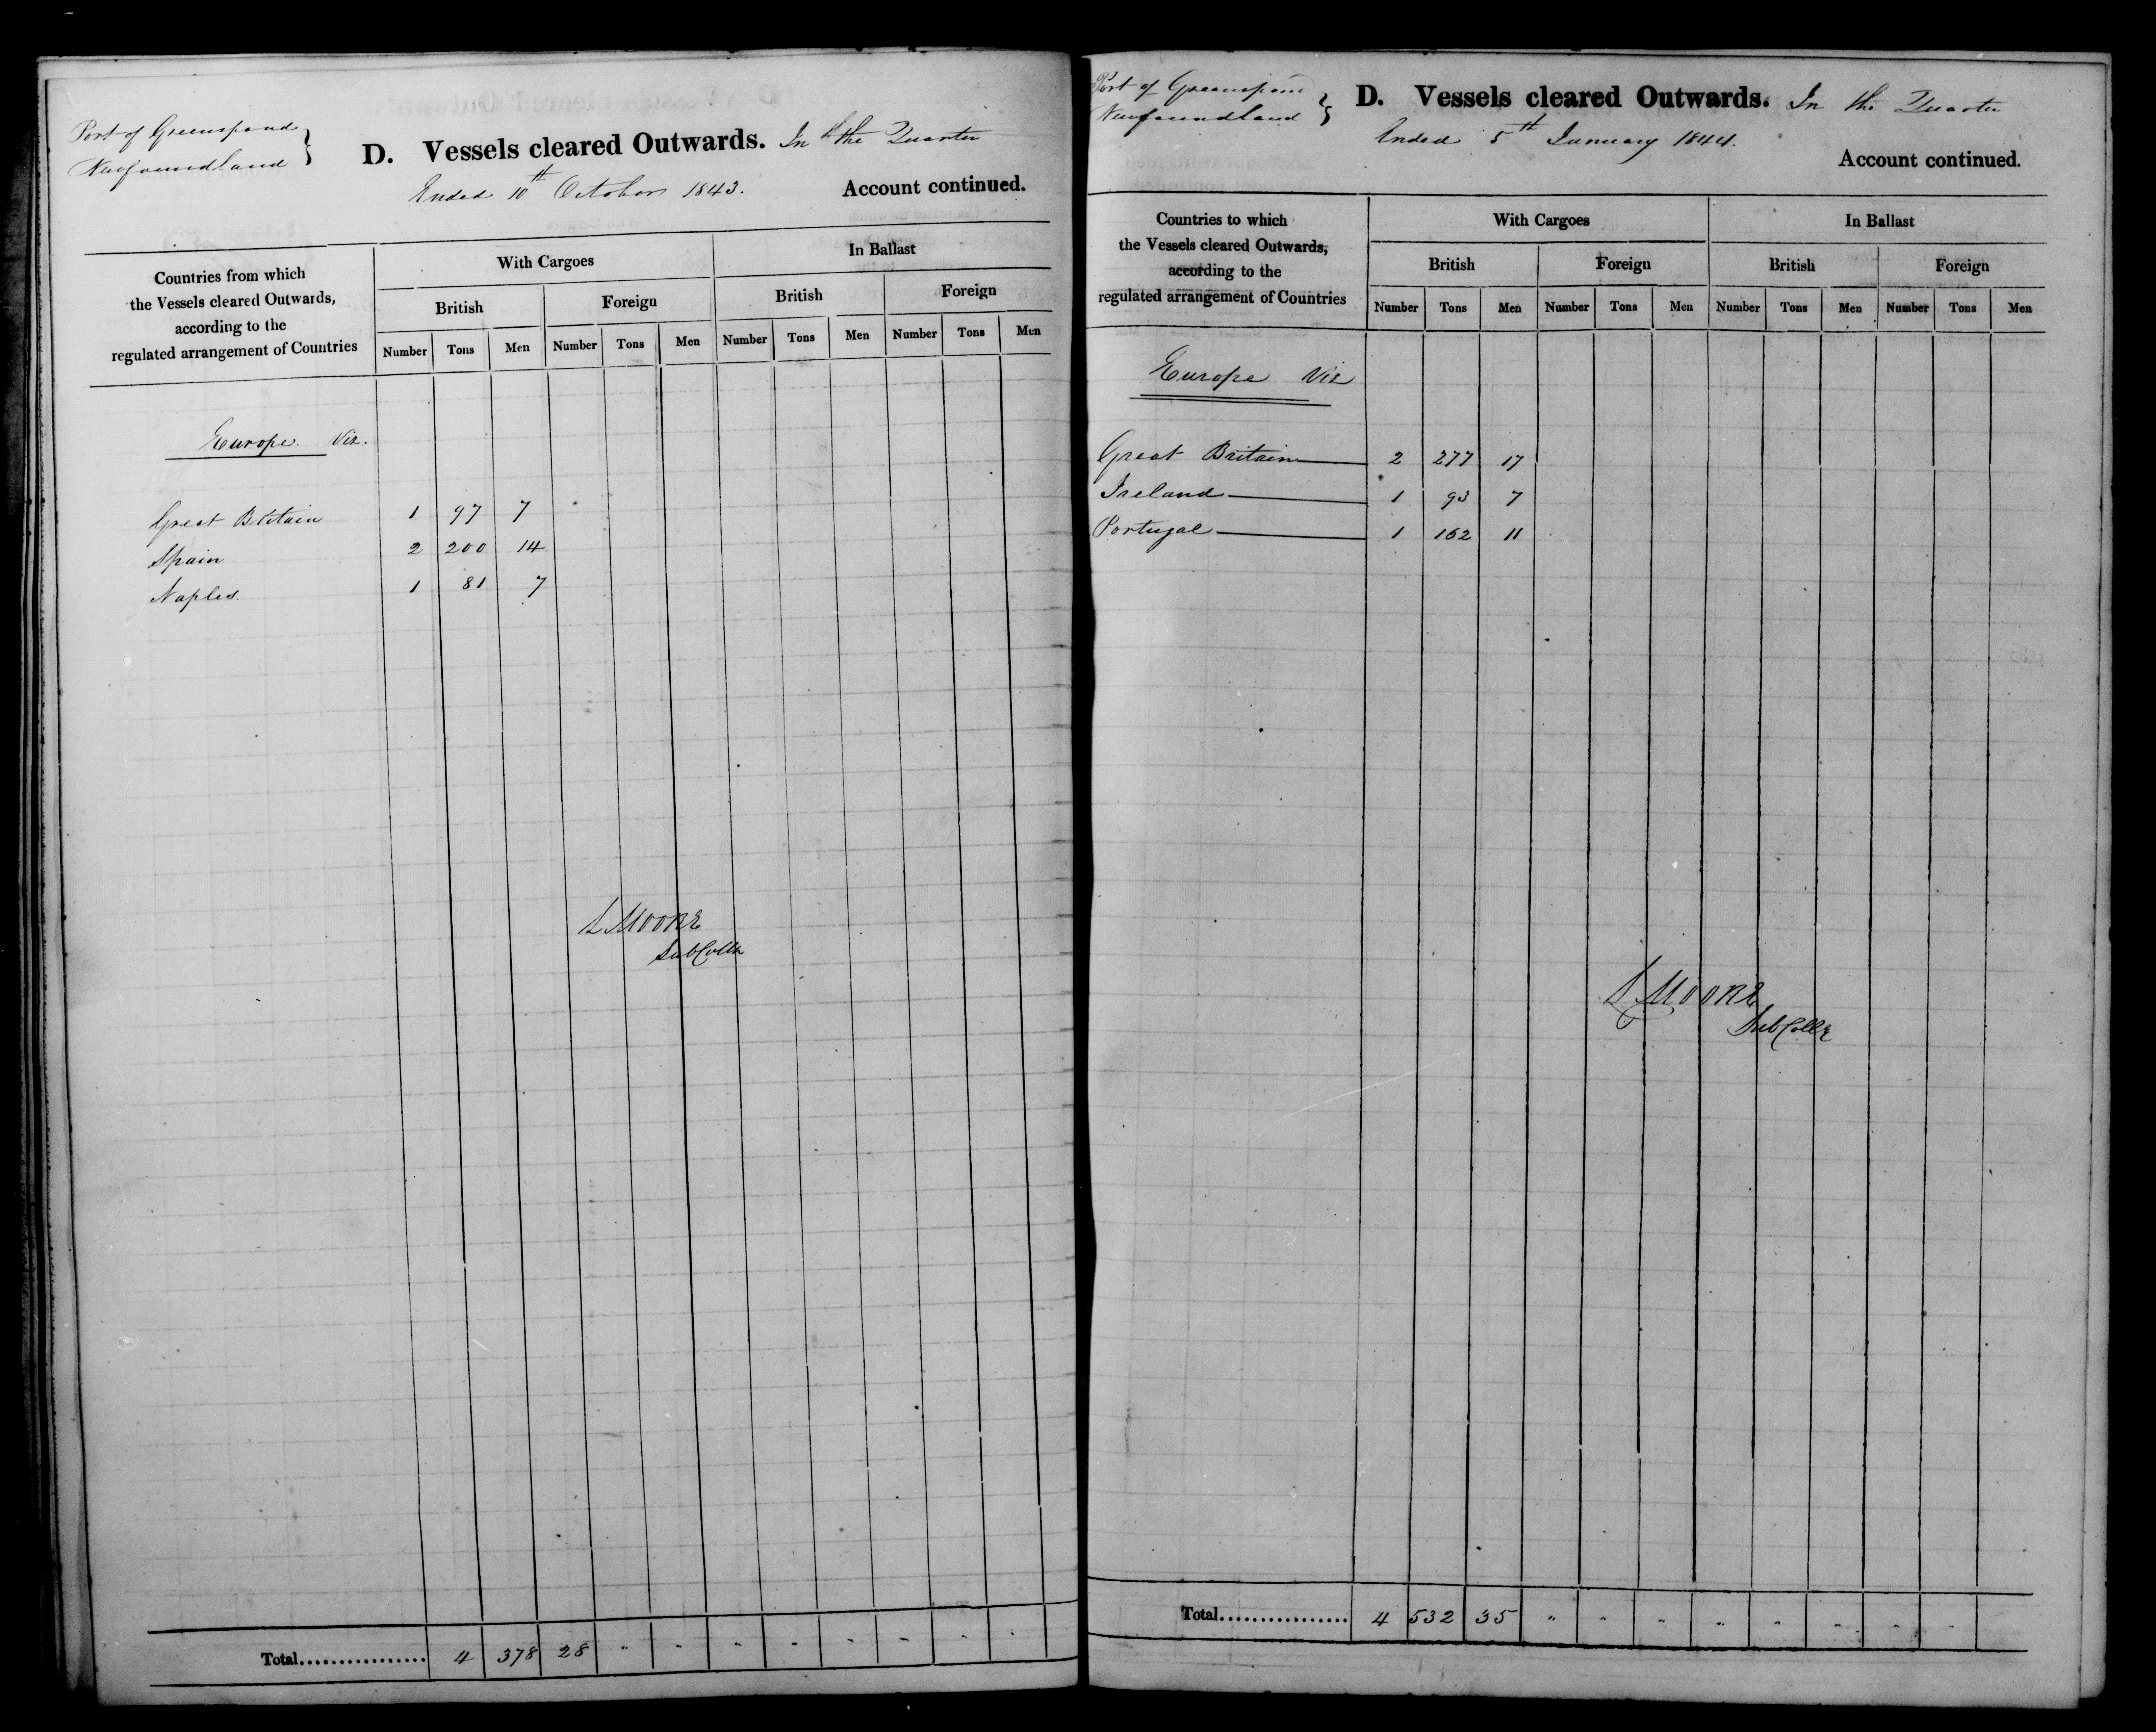 Port of Greenspond
Newfoundland }
D. Vessels cleared Outwards. In the Quarter
Ended 10th October 1843.
Account continued.
Countries from which
the Vessels cleared Outwards,
according to the
regulated arrangement of Countries
With Cargoes In Ballast
British Foreign British Foreign
Number Tons Men Number Tons Men Number Tons Men Number Tons Men
Europe Viz.
Great Britain 1 97 7
Spain 2 200 14
Naples. 1 81 7
Moore
SubCollr
Total 4 378 28 " " " " " " " "
Port of Greenspond
Newfoundland }
D. Vessels cleared Outwards. In the Quarter
Ended 5th January 1844.
Account continued.
Countries to which
the Vessels cleared Outwards,
according to the
regulated arrangement of Countries
With Cargoes In Ballast
British Foreign British Foreign
Number Tons Men Number Tons Men Number Tons Men Number Tons Men
Europe Viz
Great Britain 2 277 17
Ireland 1 93 7
Portugal 1 162 11
Moore
SubCollr
Total 4 532 35 " " " " " " " "